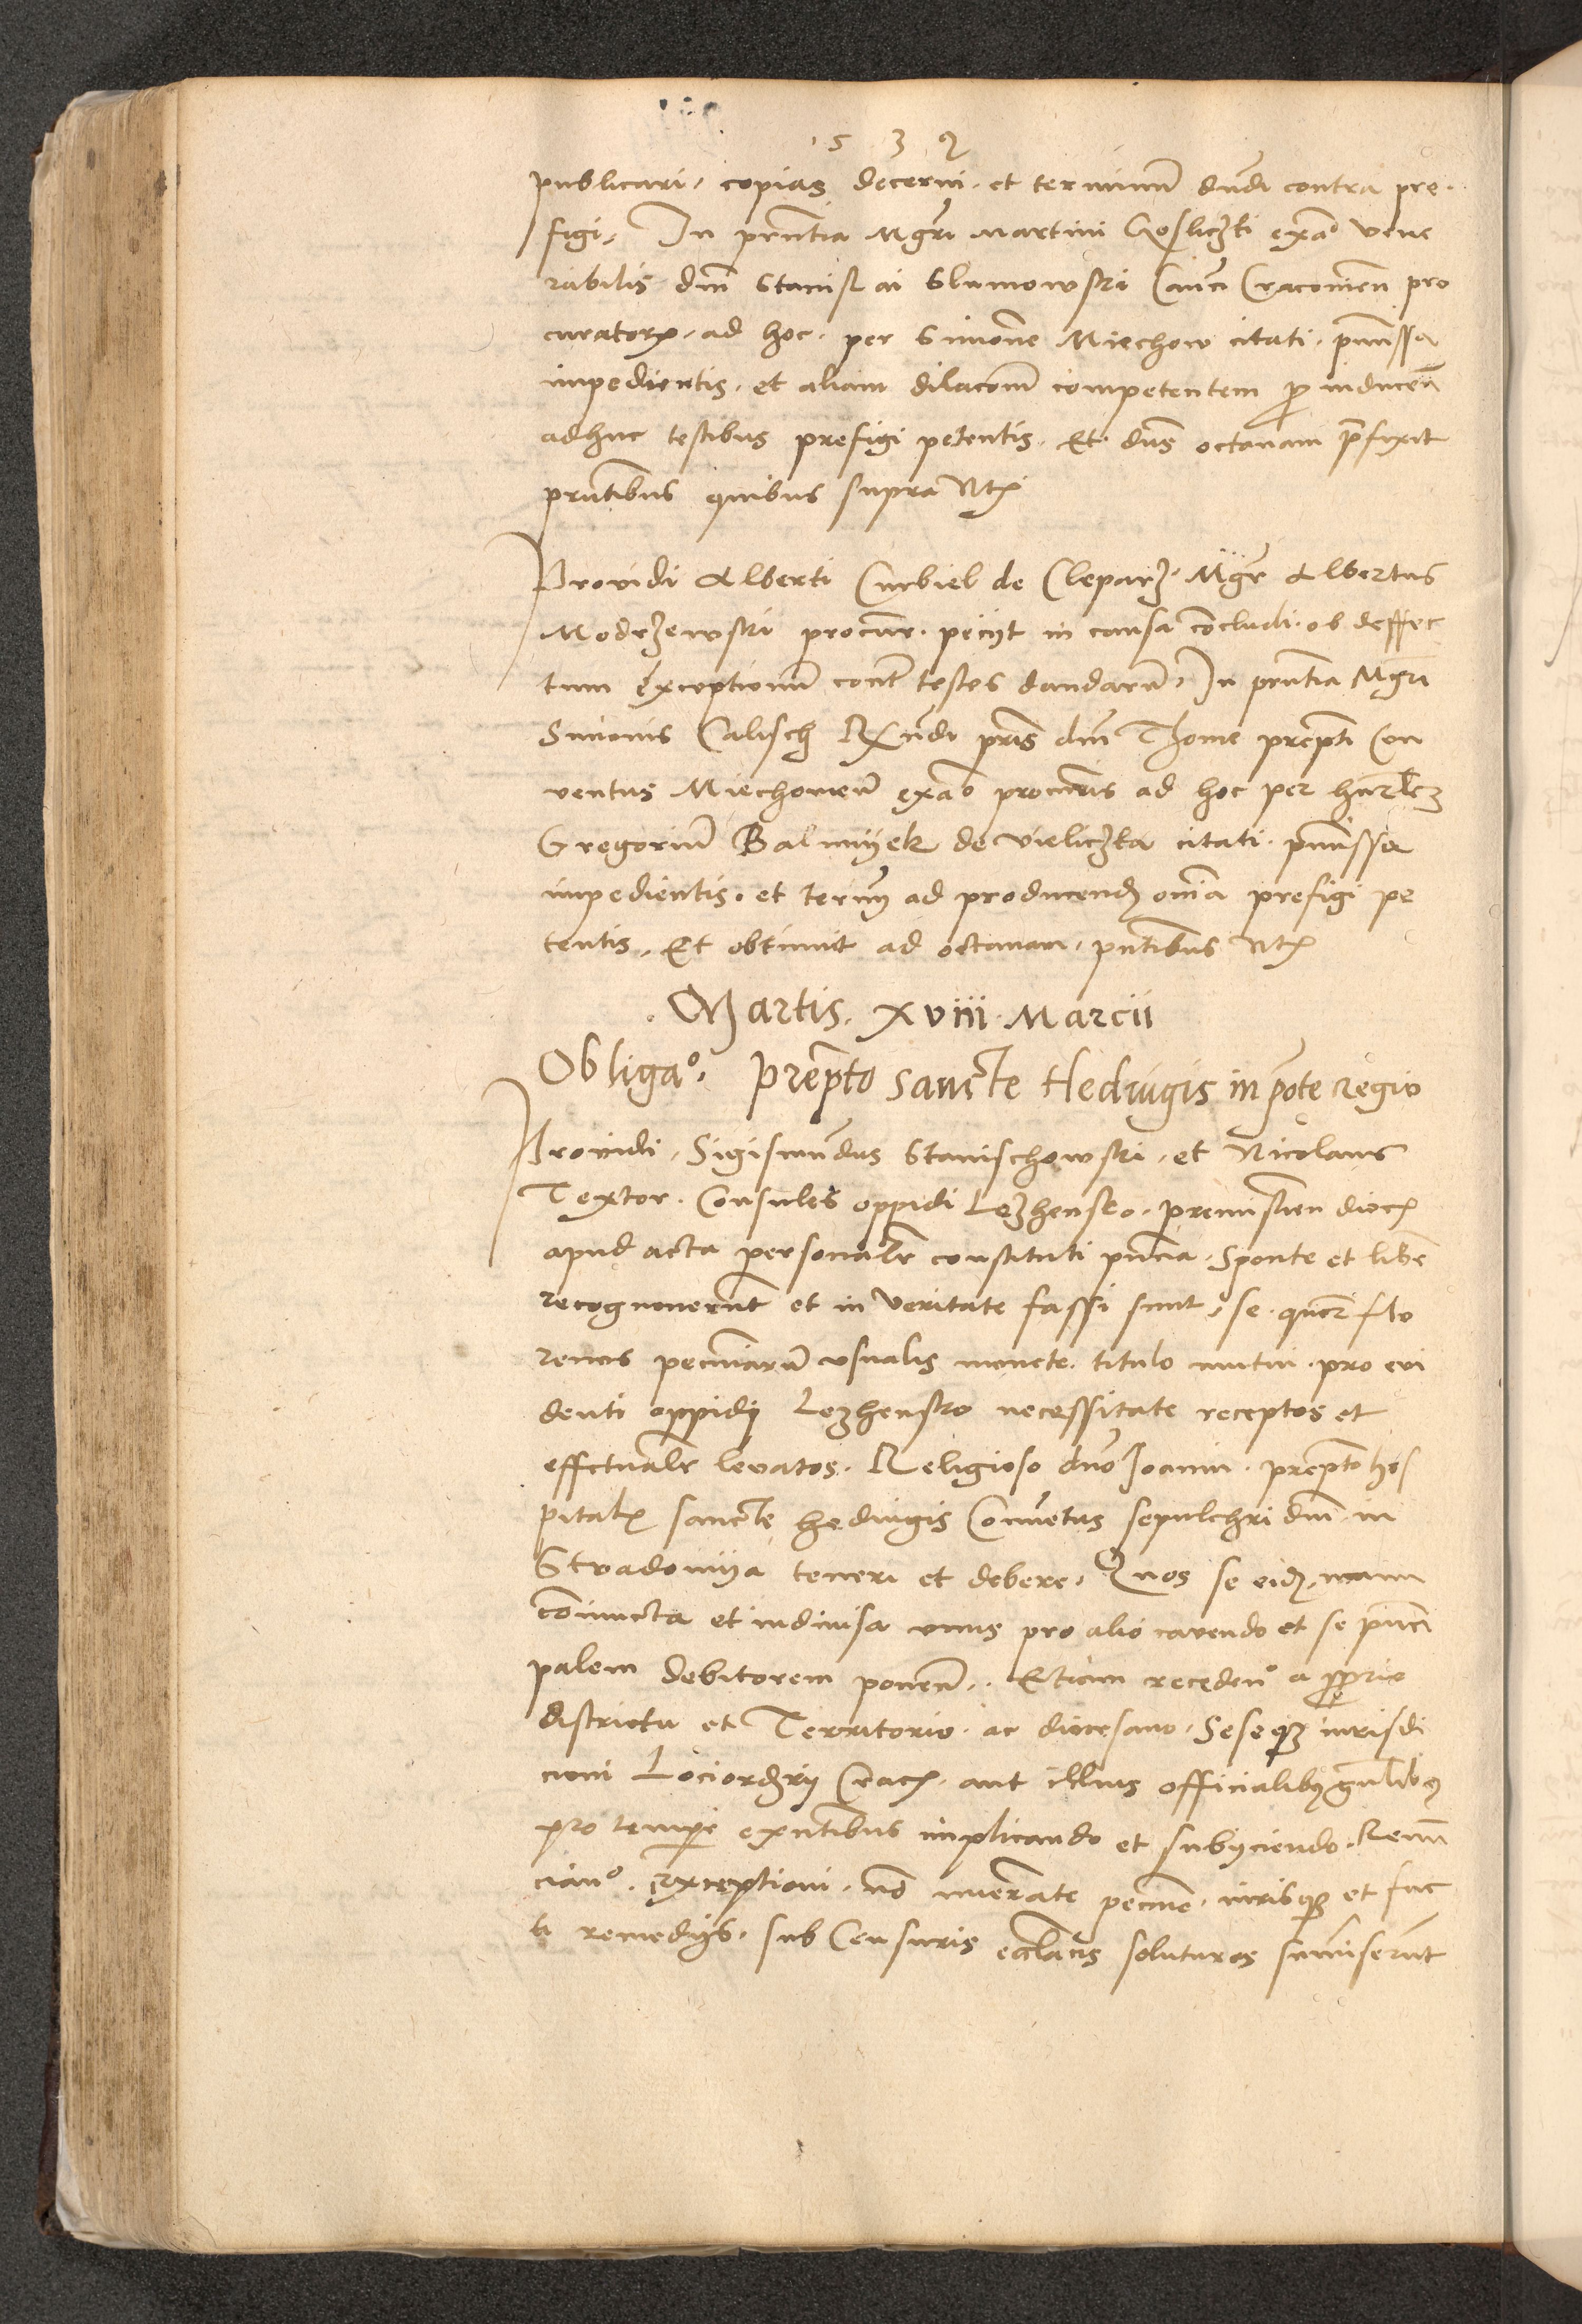 1 5 3 2
publicari, copias decerni, et terminum dicendi contra pre
figi, In pñtia Mgri Martini Gosliczki exa° vene
rabilis dñi Stanislai Slumowski Canci Cracovien pro
curatoris, ad hoc, per Simone Miechow citati, pmissa
impedientis, et aliam dilacom competentem p inducen
adhuc testibus prefigi petentis, Et dns octavam pfixit
pñtibus quibus supra Ntis
Providi Alberti Curbiel de Cleparz, Mgr Albertus
Modrzewski procur. peciit in causa concludi ob deffec
tum exceptionum cont testes dandarum, In pñtia Mgri
Simonis Calisch Rndi pris dñi Thome prepti Con
ventus Miechovien exa° procuris ad hoc per hurlez
Gregorium Balwiyek de vieliczka citati, pmissa
impedientis, et termi ad producend omia prefigi pe
tentis, Et obtinuit ad octavam, pñtibus Ntis
Martis, xviii Marcii
Obliga°. prepto sancte Hedvigis in pote regio
Providi, Sigismundus Stanischewski, et Nicolaus
Textor, Consules oppidi Lezhensko, premislien dioc
apud acta personalr constituti pncia, Sponte et libe
recognoverunt et in veritate fassi sunt, se quatr flo
renos pecuniarum usualis monete, titulo mutui, pro evi
denti oppidi Lezhensko necessitate receptos et
effectualr levatos, Religioso dno Joanni, prepto hos
pitalis sancte hedvigis Conventus sepulchri dñi in
Stradomya teneri et debere, Quos se eidem manu
coniuncta et indivisa unus pro alio cavendo et se princi
palem debitorem ponen, Etiam receden° a pprio
districtu et Territorio ac diocesano, Seseq iurisdi
cioni Lociordrij Crac, aut illius officialibus gnlibus
pro tempore exntibus implicando et subyciendo, Renun
cian°, Exceptioni, no numerate pecunie, iurisq et fac
ti remediis, sub Censuris ecclacis soluturos summiserunt